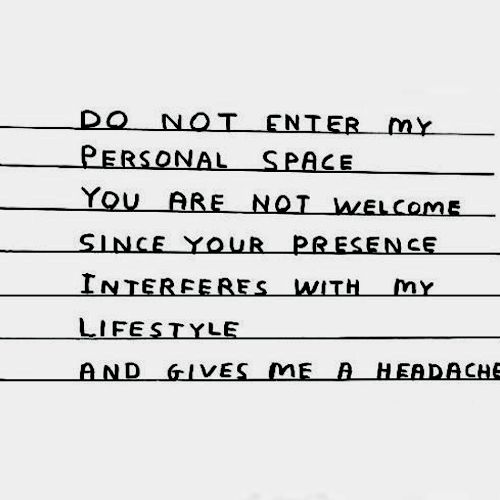 DO NOT ENTER MY
PERSONAL SPACE
YOU ARE NOT WELCOME
SINCE YOUR PRESENCE
INTERFERES WITH MY
LIFESTYLE
AND GIVES ME A HEADACHE